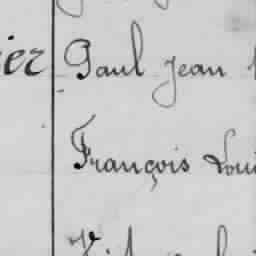 ier Paul Jean
François Loui